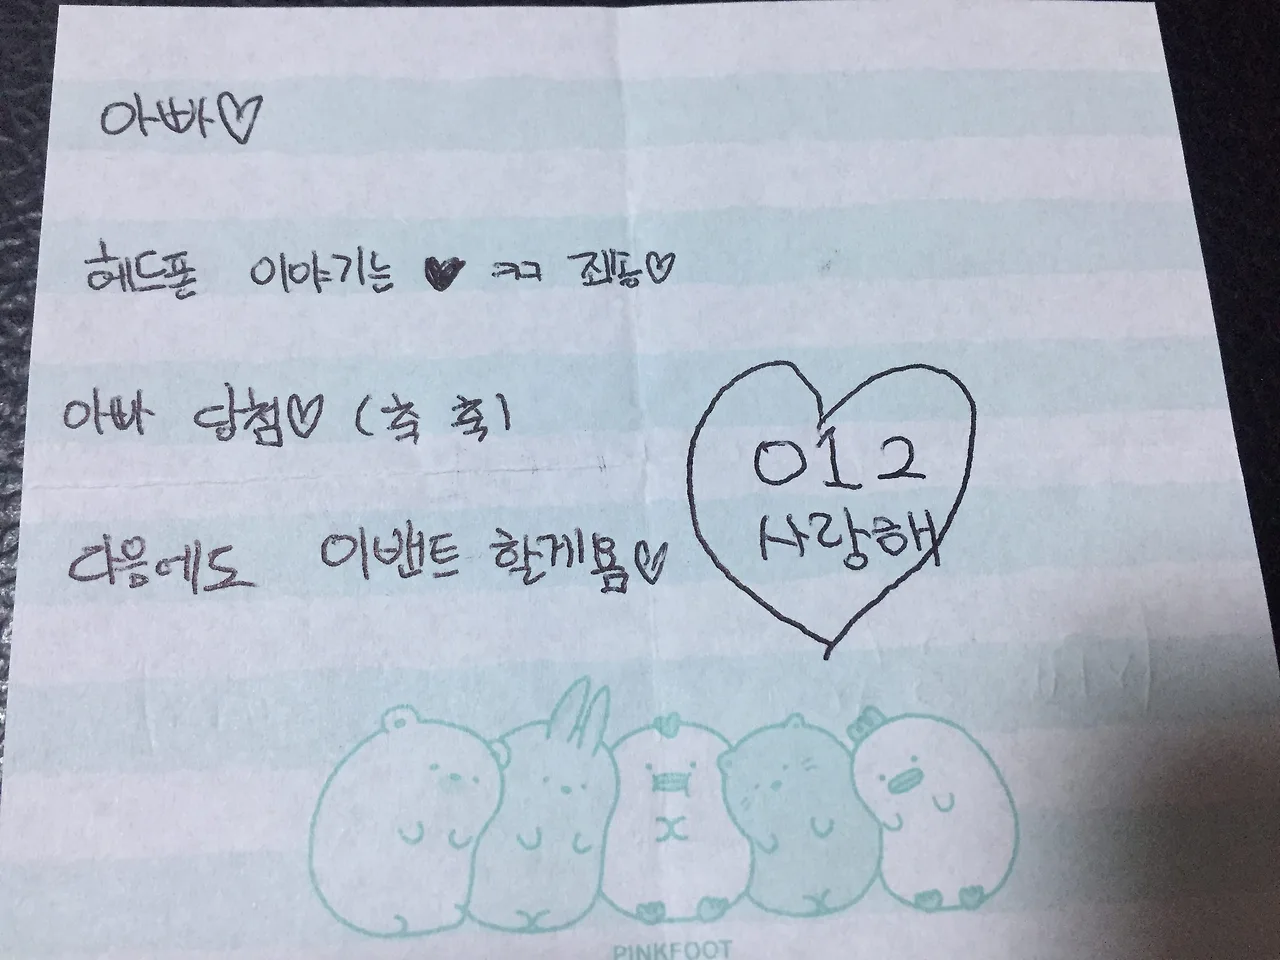 아빠♡
헤드폰 이야기는 ♥ ㅋㅋ 죄송♡
아빠 당첨♡ (축 축)
012
사랑해
다음에도 이밴트 할게욤♡
PINKFOOT